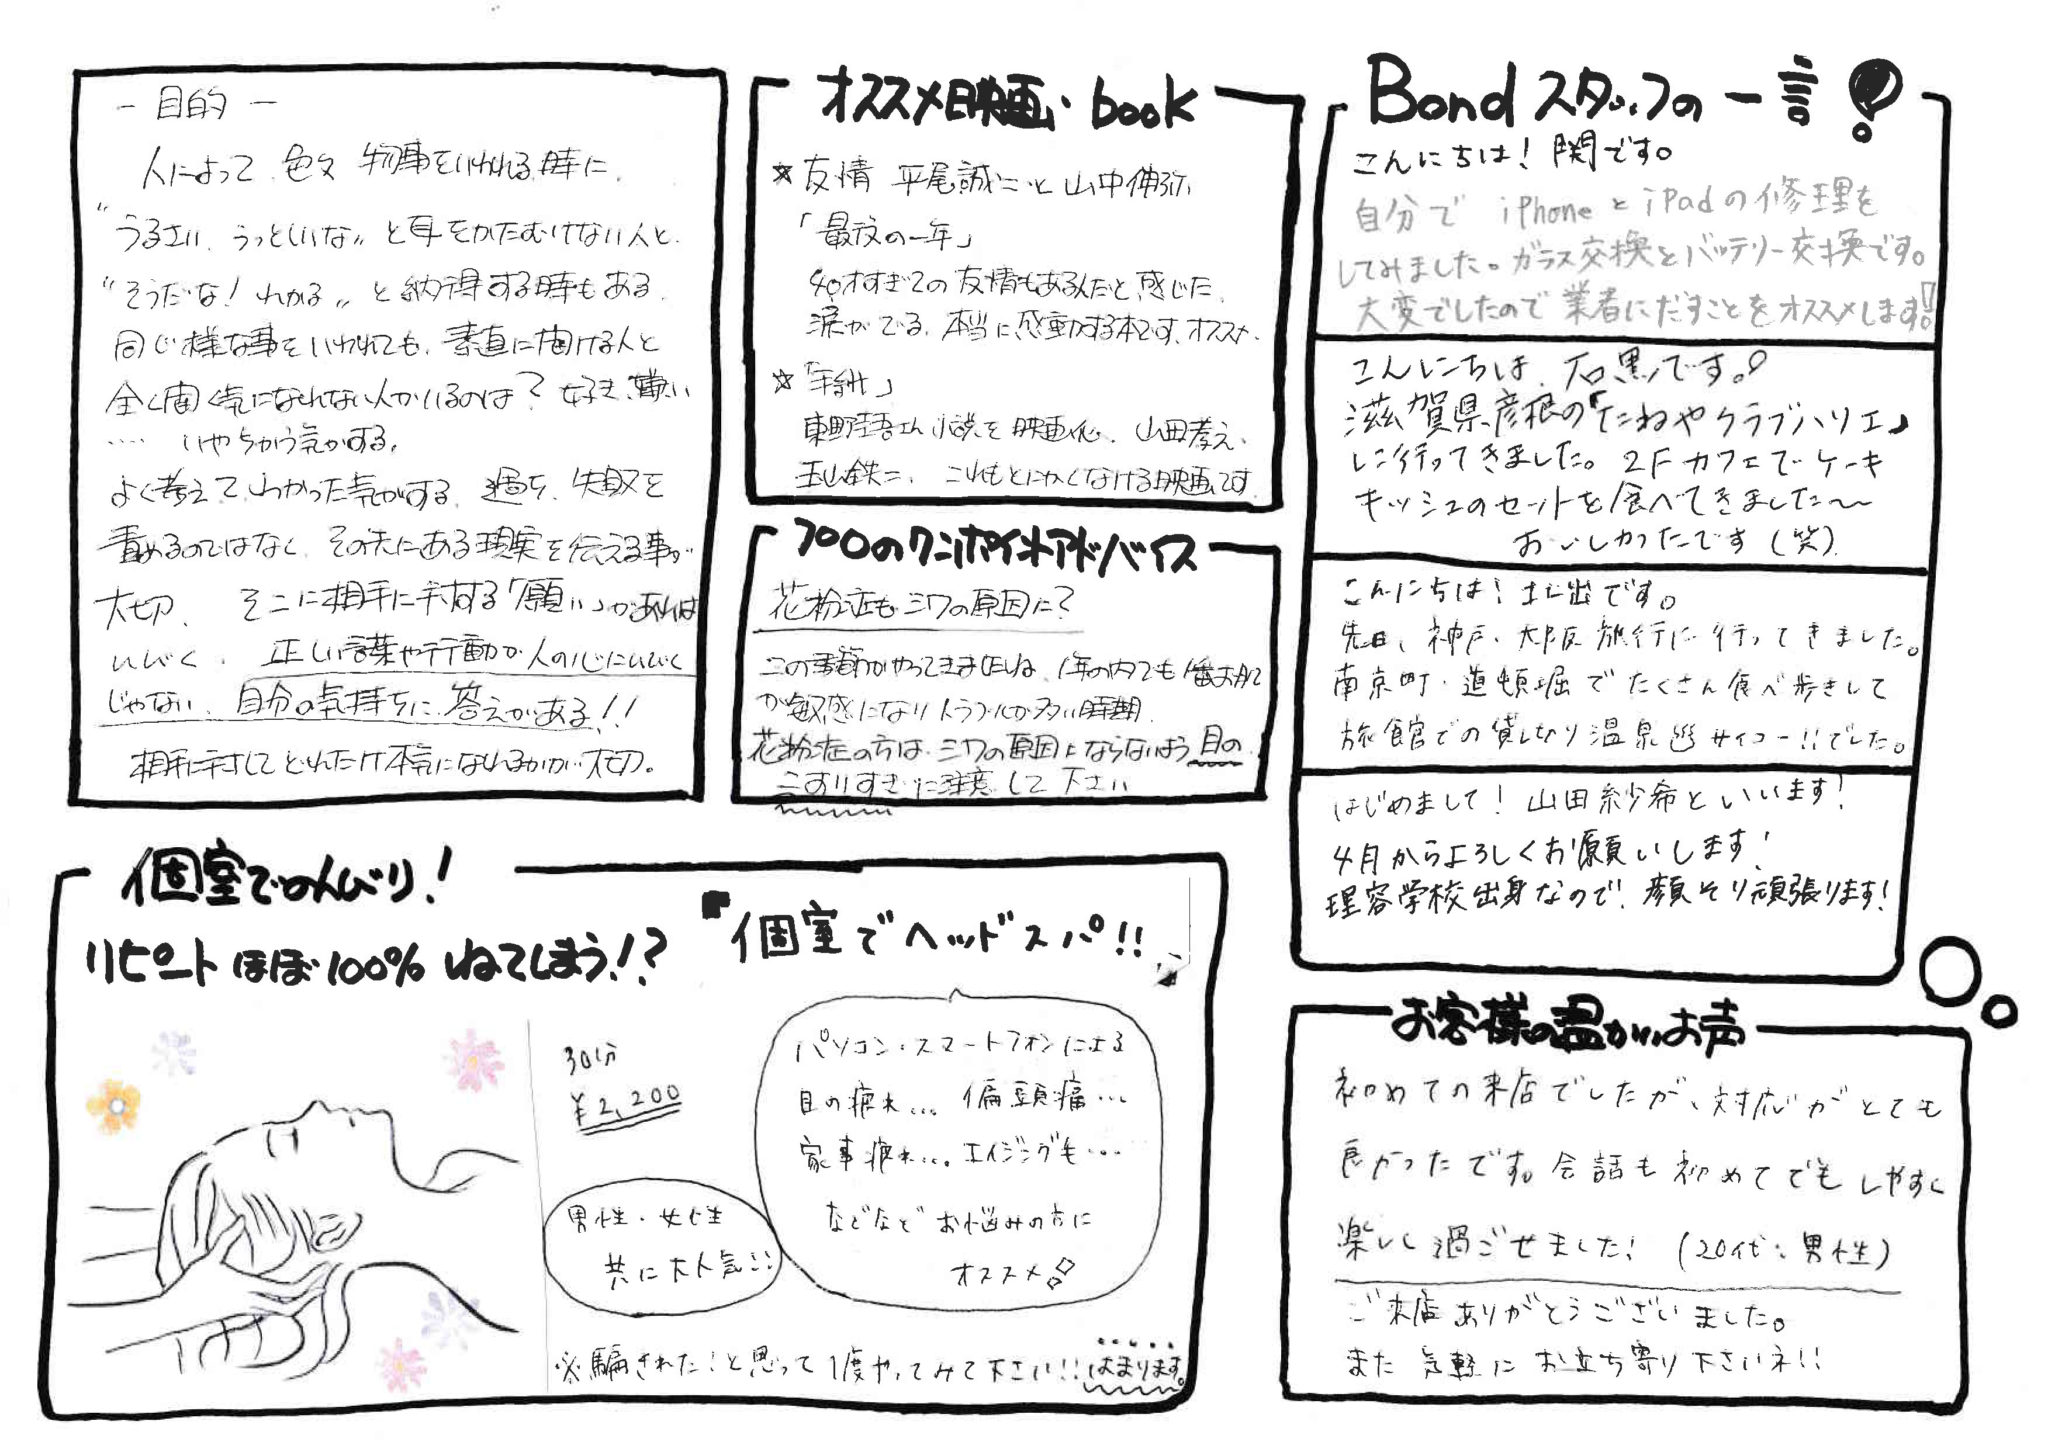 - 目的 -
人によって 色々 物事をいわれる時に、
"うるさい、うっとしいな" と耳をかたむけない人と、
"そうだな! わかる" と納得する時もある。
同じ様な事をいわれても、素直に聞ける人と
全く聞く気になれない人がいるのは? 好き、嫌い
…… いやちがう気がする。
よく考えて わかった気がする。過ち、失敗を
責めるのではなく、その先にある現実を伝える事が
大切、 そこに相手に対する「願い」があれば
ひびく。 正しい言葉や行動が人の心にひびく
じゃない、自分の気持ちに 答えがある!!
相手に対してどれだけ本気になれるかが大切。
オススメ映画・book
☆友情 平尾誠二と山中伸弥
「最後の一年」
40才すぎての友情もあるんだと感じた。
涙がでる。本当に感動する本です、オススメ。
☆「手紙」
東野圭吾さん小説を映画化。山田孝之、
玉山鉄二、 これもとにかくなける映画です
プロのワンポイントアドバイス
花粉症もシワの原因に?
この季節がやってきましたね、1年の内でも1番お肌
が敏感になりトラブルが多い時期。
花粉症の方は シワの原因にならないよう 目の
こすりすぎに注意して下さい
Bondスタッフの一言!
こんにちは! 関です。
自分で iPhoneとiPadの修理を
してみました。ガラス交換とバッテリー交換です。
大変でしたので業者にだすことをオススメします!
こんにちは、石黒です。
滋賀県彦根の「たねやクラブハリエ」
に行ってきました。2Fカフェでケーキ
キッシュのセットを食べてきました〜
おいしかったです(笑)
こんにちは! 北出です。
先日、神戸・大阪旅行に行ってきました。
南京町・道頓堀でたくさん食べ歩きして
旅館での貸しきり温泉♨サイコー!!でした。
はじめまして! 山田紗希といいます!
4月からよろしくお願いします!
理容学校出身なので、顔そり頑張ります!
個室でのんびり!
リピートほぼ100% ねてしまう!?
『個室でヘッドスパ!!』
30分
¥2,200
パソコン・スマートフォンによる
目の疲れ… 偏頭痛…
家事疲れ… エイジングも…
などなど お悩みの方に
オススメ!!
男性・女性
共に大人気!!
※騙された!と思って1度やってみて下さい!! はまります。
お客様の温かいお声
初めての来店でしたが、対応がとても
良かったです。会話も初めてでもしやすく
楽しく過ごせました! (20代:男性)
ご来店ありがとうございました。
また気軽にお立ち寄り下さいネ!!